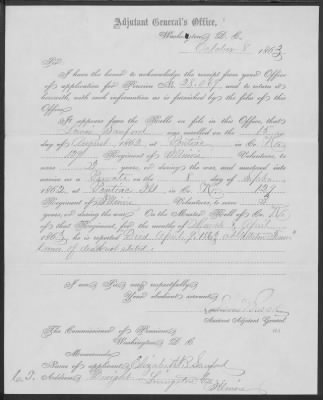 Adjutant General's Office,
Washington, D. C.
October 8, 1863
Sir:
I have the honor to acknowledge the receipt from your Office
of application for Pension No. 28.069, and to return it
herewith, with such information as is furnished by the files of this
Office.
It appears from the Rolls on file in this Office, that
Sanford was enrolled on the
day of August, 1862, at Pontiac in Co. K.
129 Regiment of Illinois Volunteers, to
serve 3 years, or during the war, and mustered into
service as a Private on the 8 day of Septr.
1862, at Pontiac Ill in Co. K. 129
Regiment of Illinois Volunteers, to serve 3
years, or during the war. On the Muster Roll of Co. K.
of that Regiment, for the months of March & April
1863, he is reported Died April 1863 at Gallatin Tenn
cause of death not stated.
I am, Sir, very respectfully,
Your obedient servant,
Assistant Adjutant General.
The Commissioner of Pensions,
Washington, D. C.
Memoranda:
Name of applicant Elizabeth R. Sanford
Address Dwight Livingston Co
Illinois